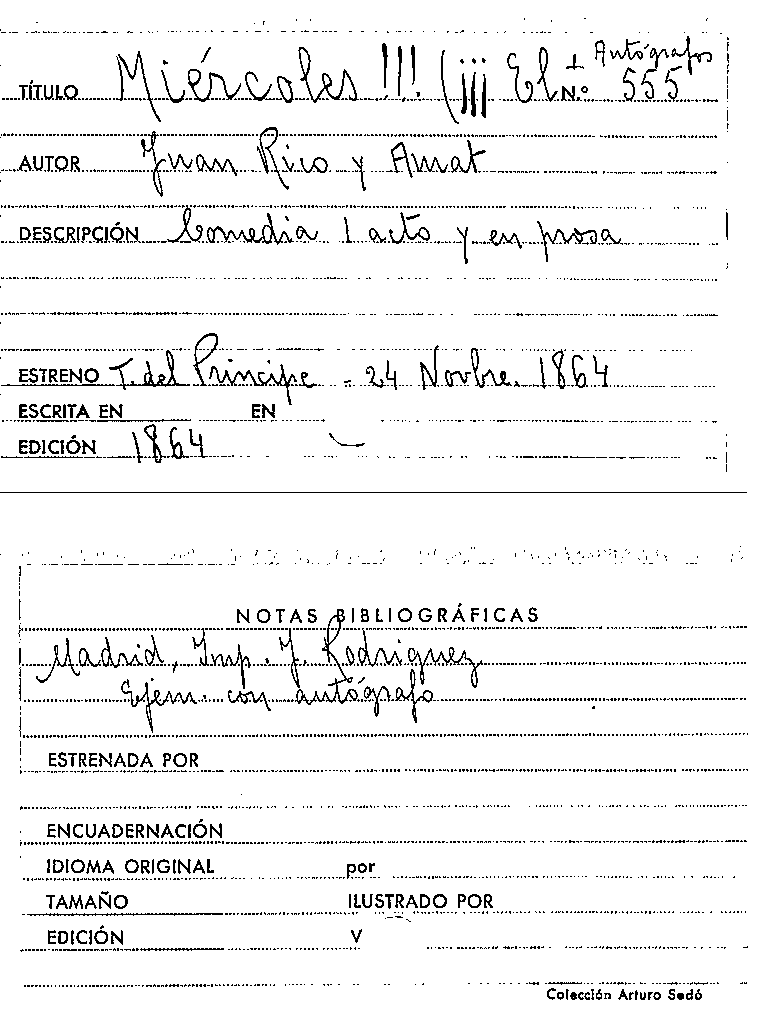 Autógrafos
TÍTULO Miércoles !!! (¡¡¡ El N.º 555
AUTOR Juan Rico y Amat
DESCRIPCIÓN Comedia 1 acto y en prosa
ESTRENO T. del Príncipe = 24 Novbre. 1864
ESCRITA EN EN
EDICIÓN 1864
NOTAS BIBLIOGRÁFICAS
Madrid, Imp. J. Rodriguez
Ejem. con autógrafo
ESTRENADA POR
ENCUADERNACIÓN
IDIOMA ORIGINAL por
TAMAÑO ILUSTRADO POR
EDICIÓN V
Colección Arturo Sedó